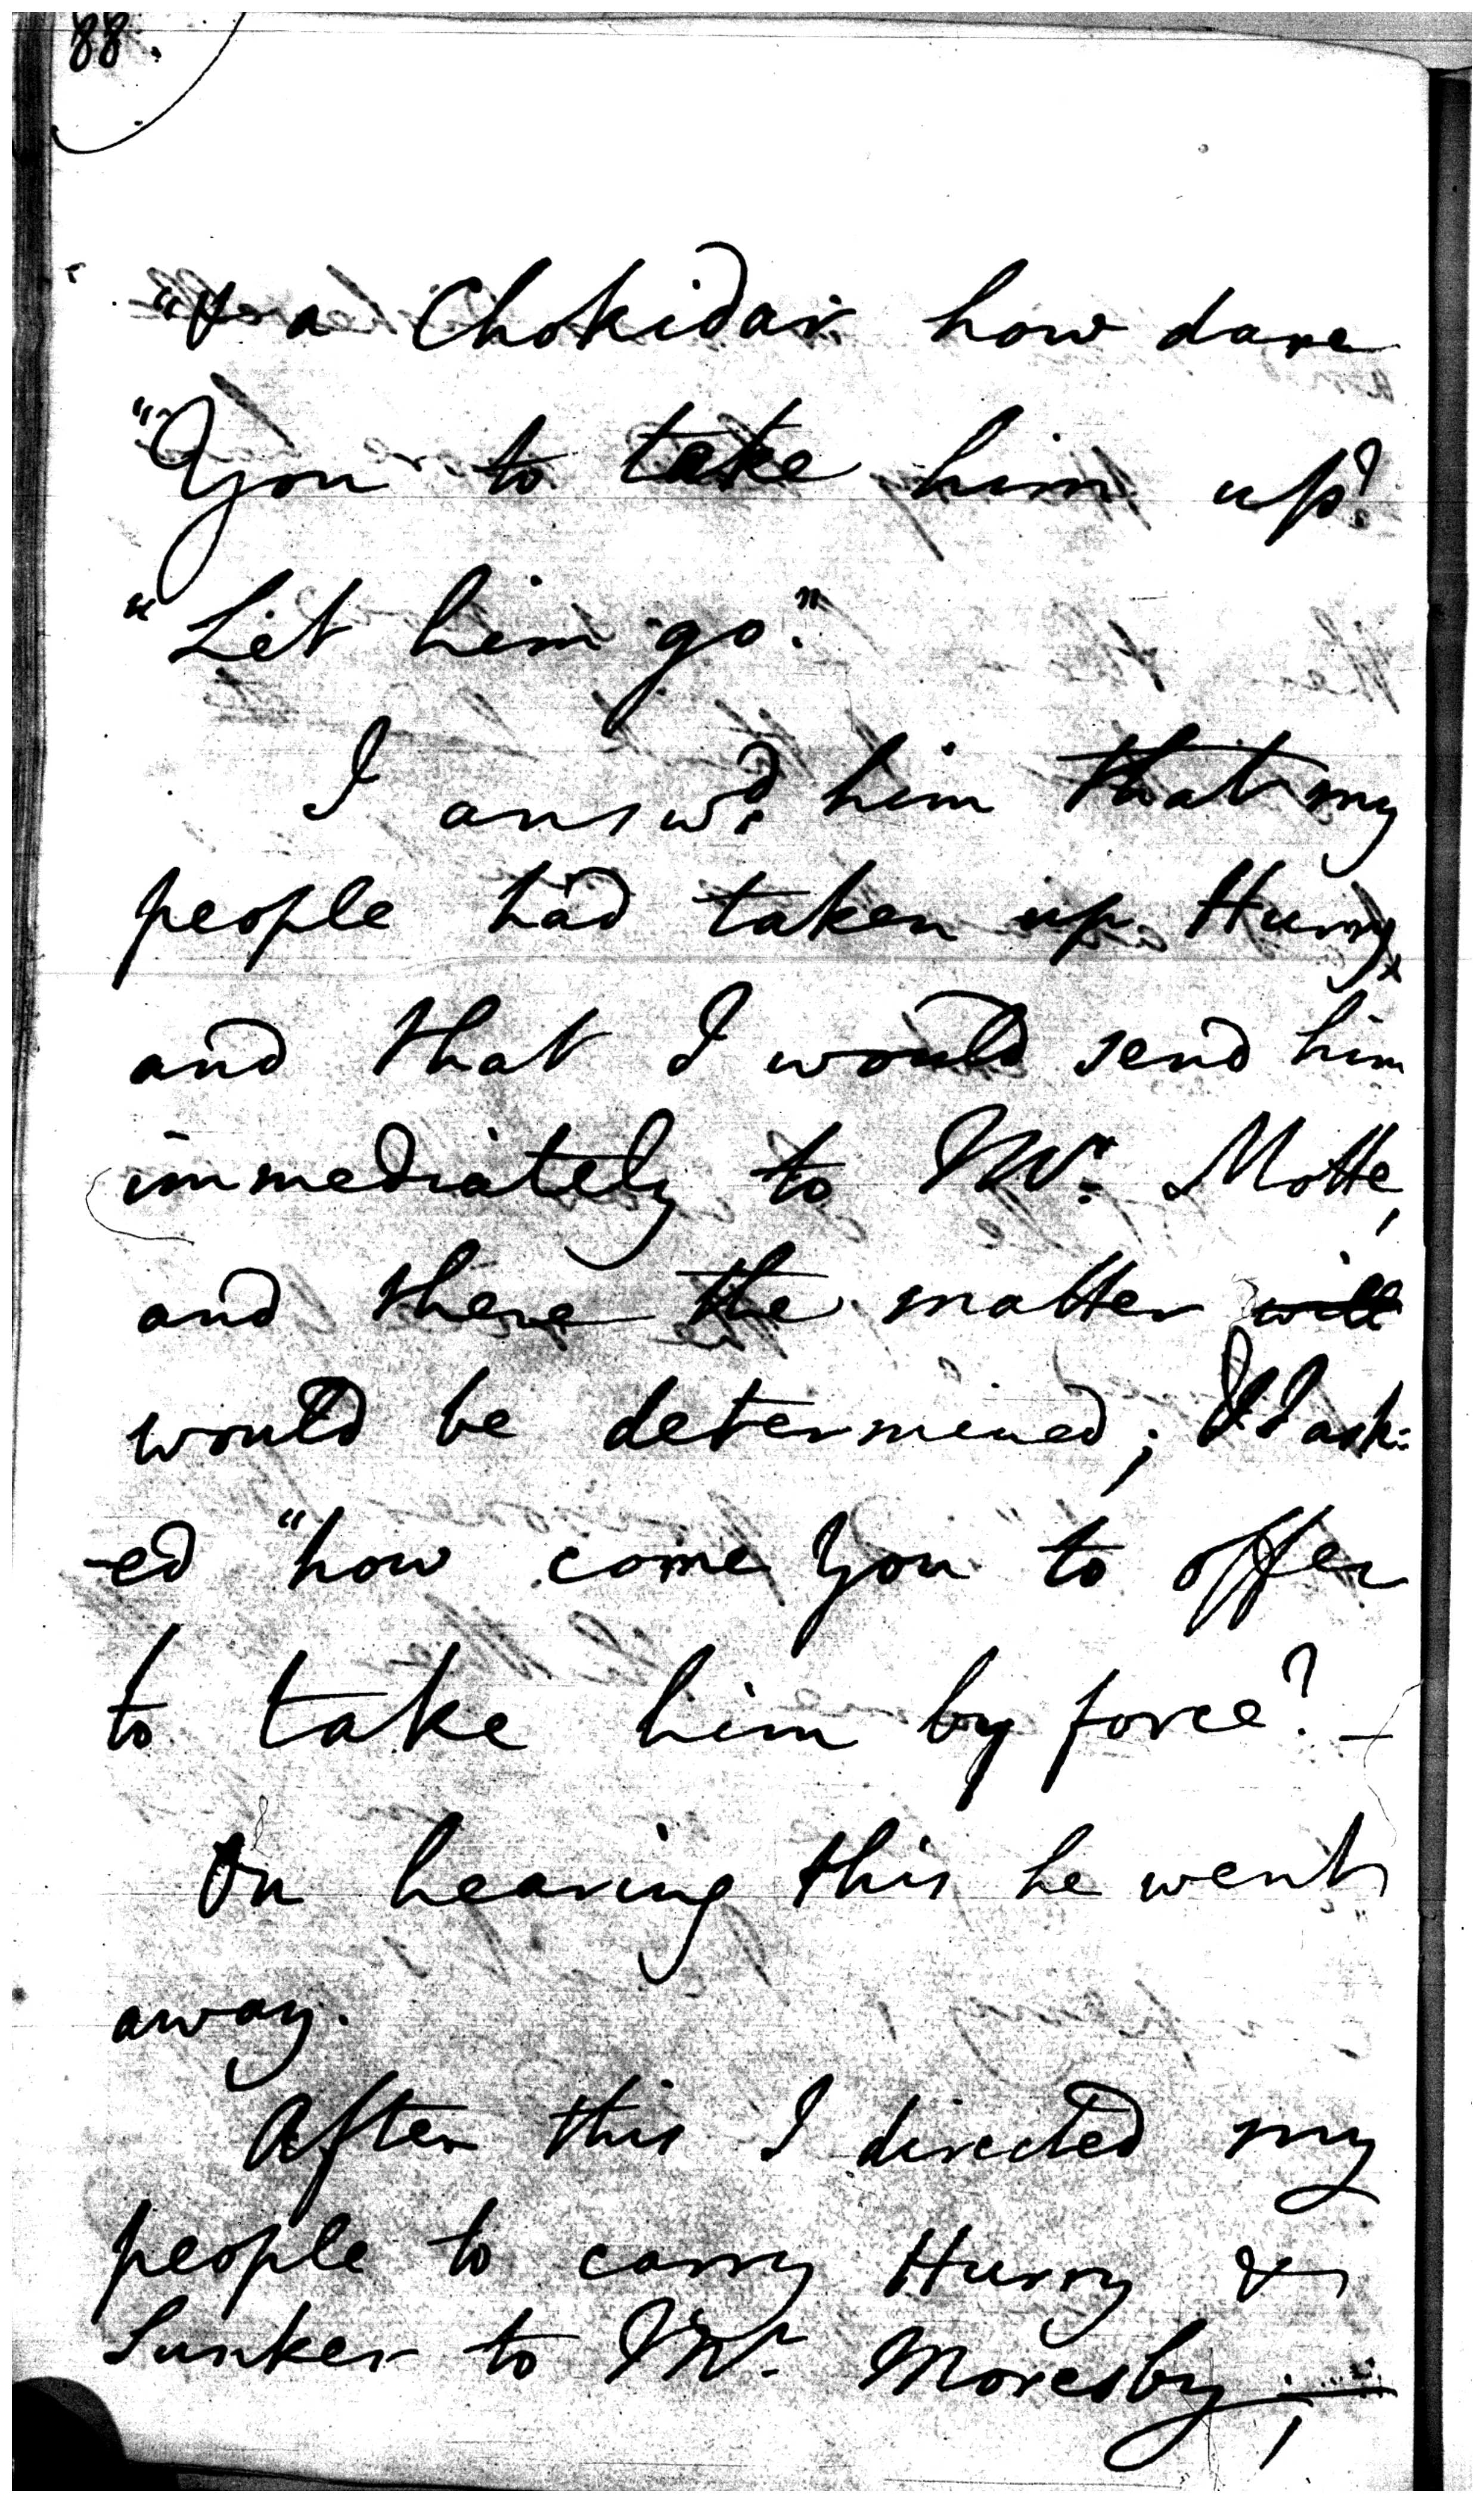 88.
"& a Chokidar how dare
"You to take him up?
"Let him go."
I answd. him that my
people had taken up Hurry
and that I would send him
immediately to Mr. Motte,
and there the matter will
would be determined; & I ask-
-ed "how come You to offer
to take him by force? -
On hearing this he went
away.
After this I directed my
people to carry Hurry &
Sunker to Mr. Moresby;